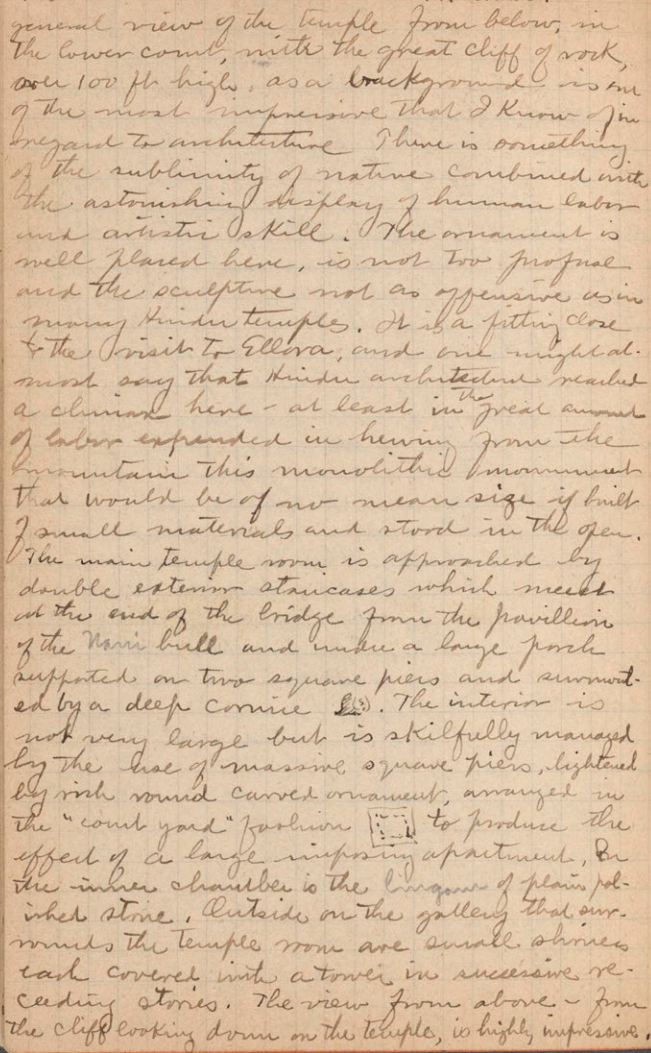 general view of the temple from below, in
the lower court, with the great cliff of rock,
over 100 ft high, as a background is one
of the most impressive that I know of in
regard to architecture There is something
of the sublimity of native combined with
the astonishing display of human labor
and artistic skill. The ornament is
well placed here, is not too profuse
and the sculpture not as offensive as in
many Hindu temples. It is a fitting close
to the visit to Ellora, and one might al-
most say that Hindu architecture reached
a climax here - at least in the great amount
of labor expended in hewing from the
mountain this monolithic monument
that would be of no mean size if built
of small materials and stood in the open.
The main temple room is approached by
double exterior staircases which meet
at the end of the bridge from the pavillion
of the bull and under a large porch
supported on two square piers and surmount-
ed by a deep cornice. The interior is
not very large but is skilfully managed
by the use of massive square piers, lightened
by rich round carved ornament, arranged in
the "court yard" fashion to produce the
effect of a large imposing apartment, In
the inner chamber is the lingam of plain pol-
ished stone. Outside on the gallery that sur-
rounds the temple room are small shrines
each covered with a tower in successive re-
ceeding stories. The view from above - from
the cliff looking down on the temple, is highly impressive.